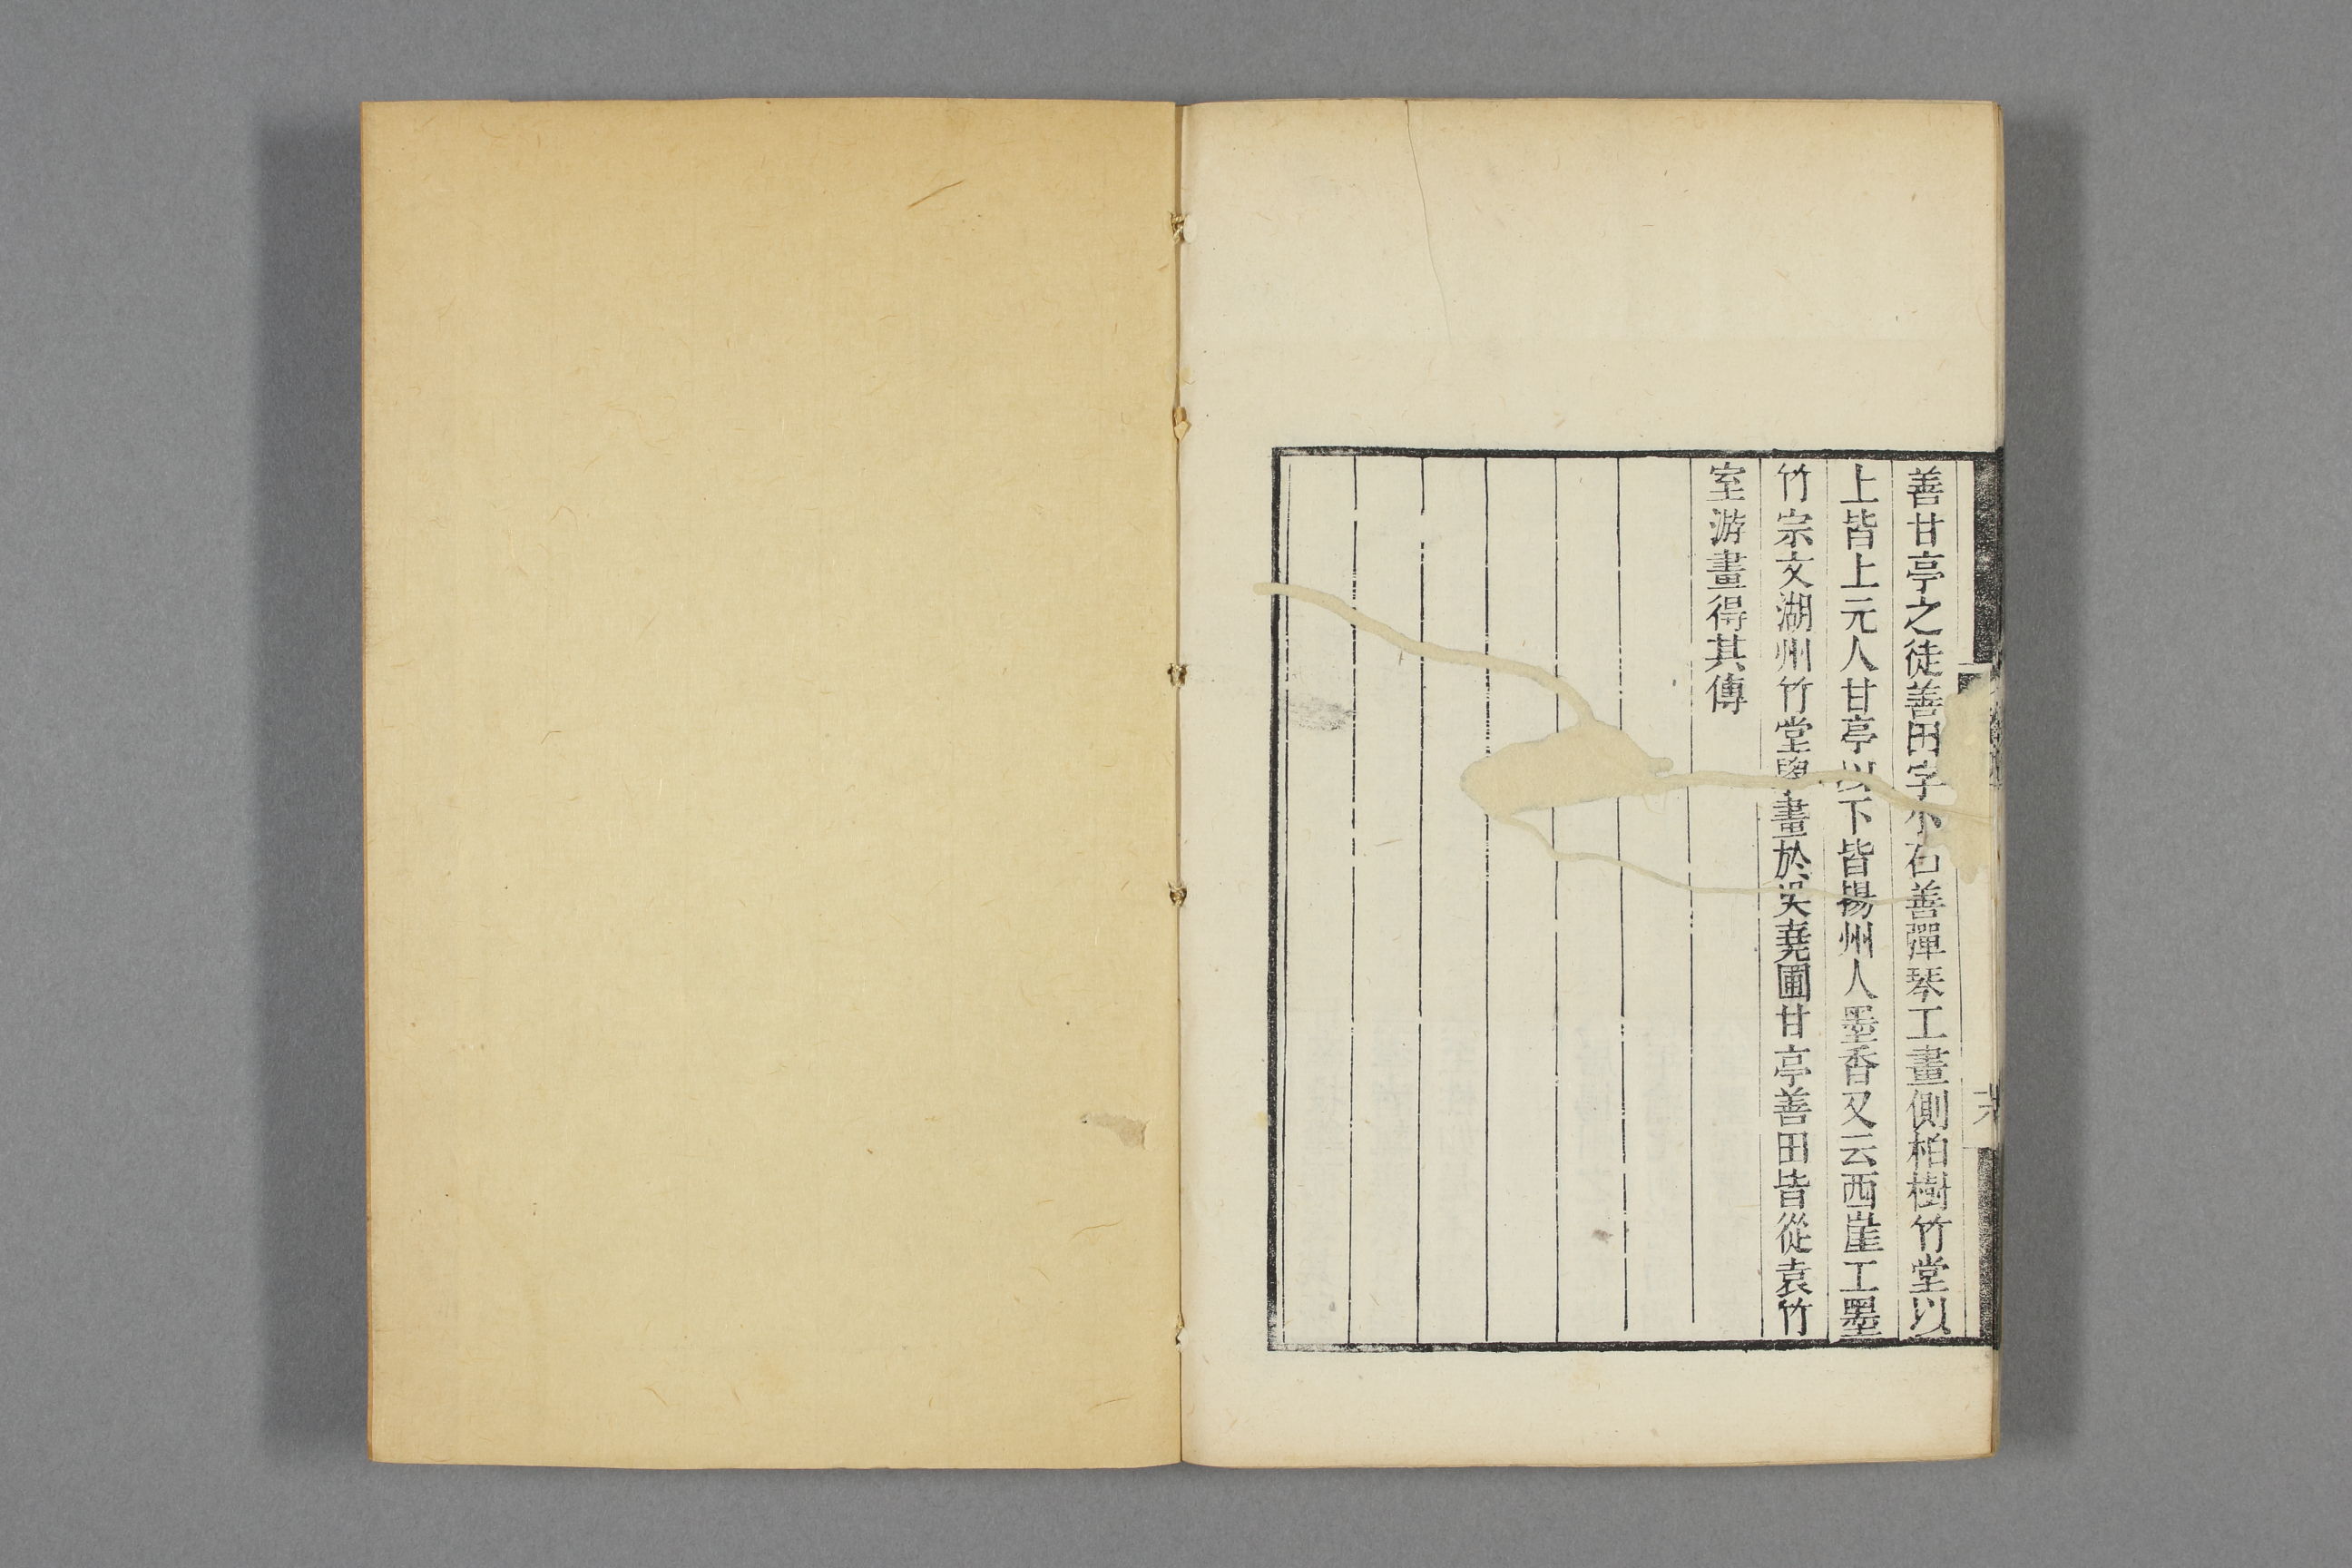 善甘亭之徒善田字小石善彈琴工畫側柏樹竹堂以
上皆上元人甘亭以下皆揚州人墨香又云西崖工墨
竹宗文湖州竹堂學畫於吴堯圃甘亭善田皆從袁竹
室游畫得其傳